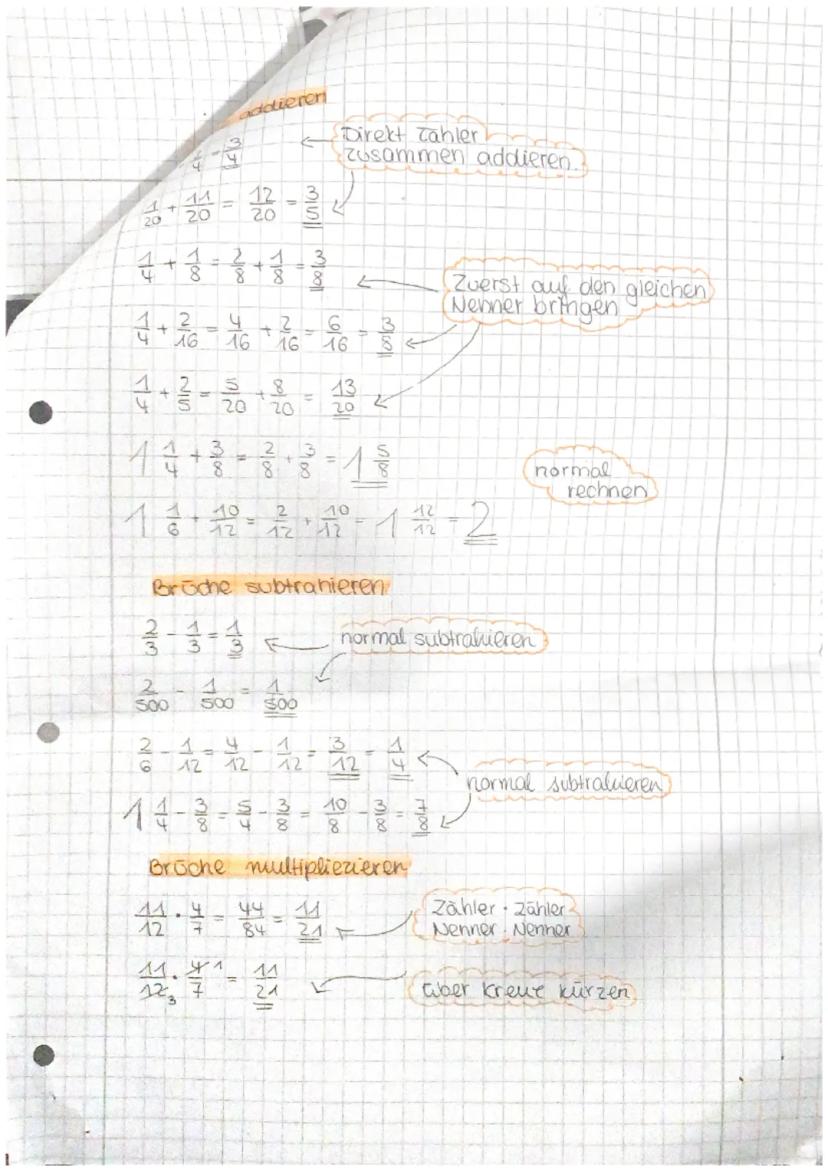 addieren
3/4
Direkt Zähler
zusammen addieren.
1/20 + 11/20 = 12/20 = 3/5
1/4 + 1/8 = 2/8 + 1/8 = 3/8
Zuerst auf den gleichen
Nenner bringen
1/4 + 2/16 = 4/16 + 2/16 = 6/16 = 3/8
1/4 + 2/5 = 5/20 + 8/20 = 13/20
1 1/4 + 3/8 = 2/8 + 3/8 = 1 5/8
normal
rechnen
1 1/6 + 10/12 = 2/12 + 10/12 = 1 12/12 = 2
Brüche subtrahieren
2/3 - 1/3 = 1/3
normal subtrahieren
2/500 - 1/500 = 1/500
2/6 - 1/12 = 4/12 - 1/12 = 3/12 = 1/4
normal subtrahieren
1 1/4 - 3/8 = 5/4 - 3/8 = 10/8 - 3/8 = 7/8
Brüche multiplizieren
11/12 · 4/7 = 44/84 = 11/21
Zähler · Zähler
Nenner · Nenner
11/12 3 · 4/7 1 = 11/21
über kreuz kürzen